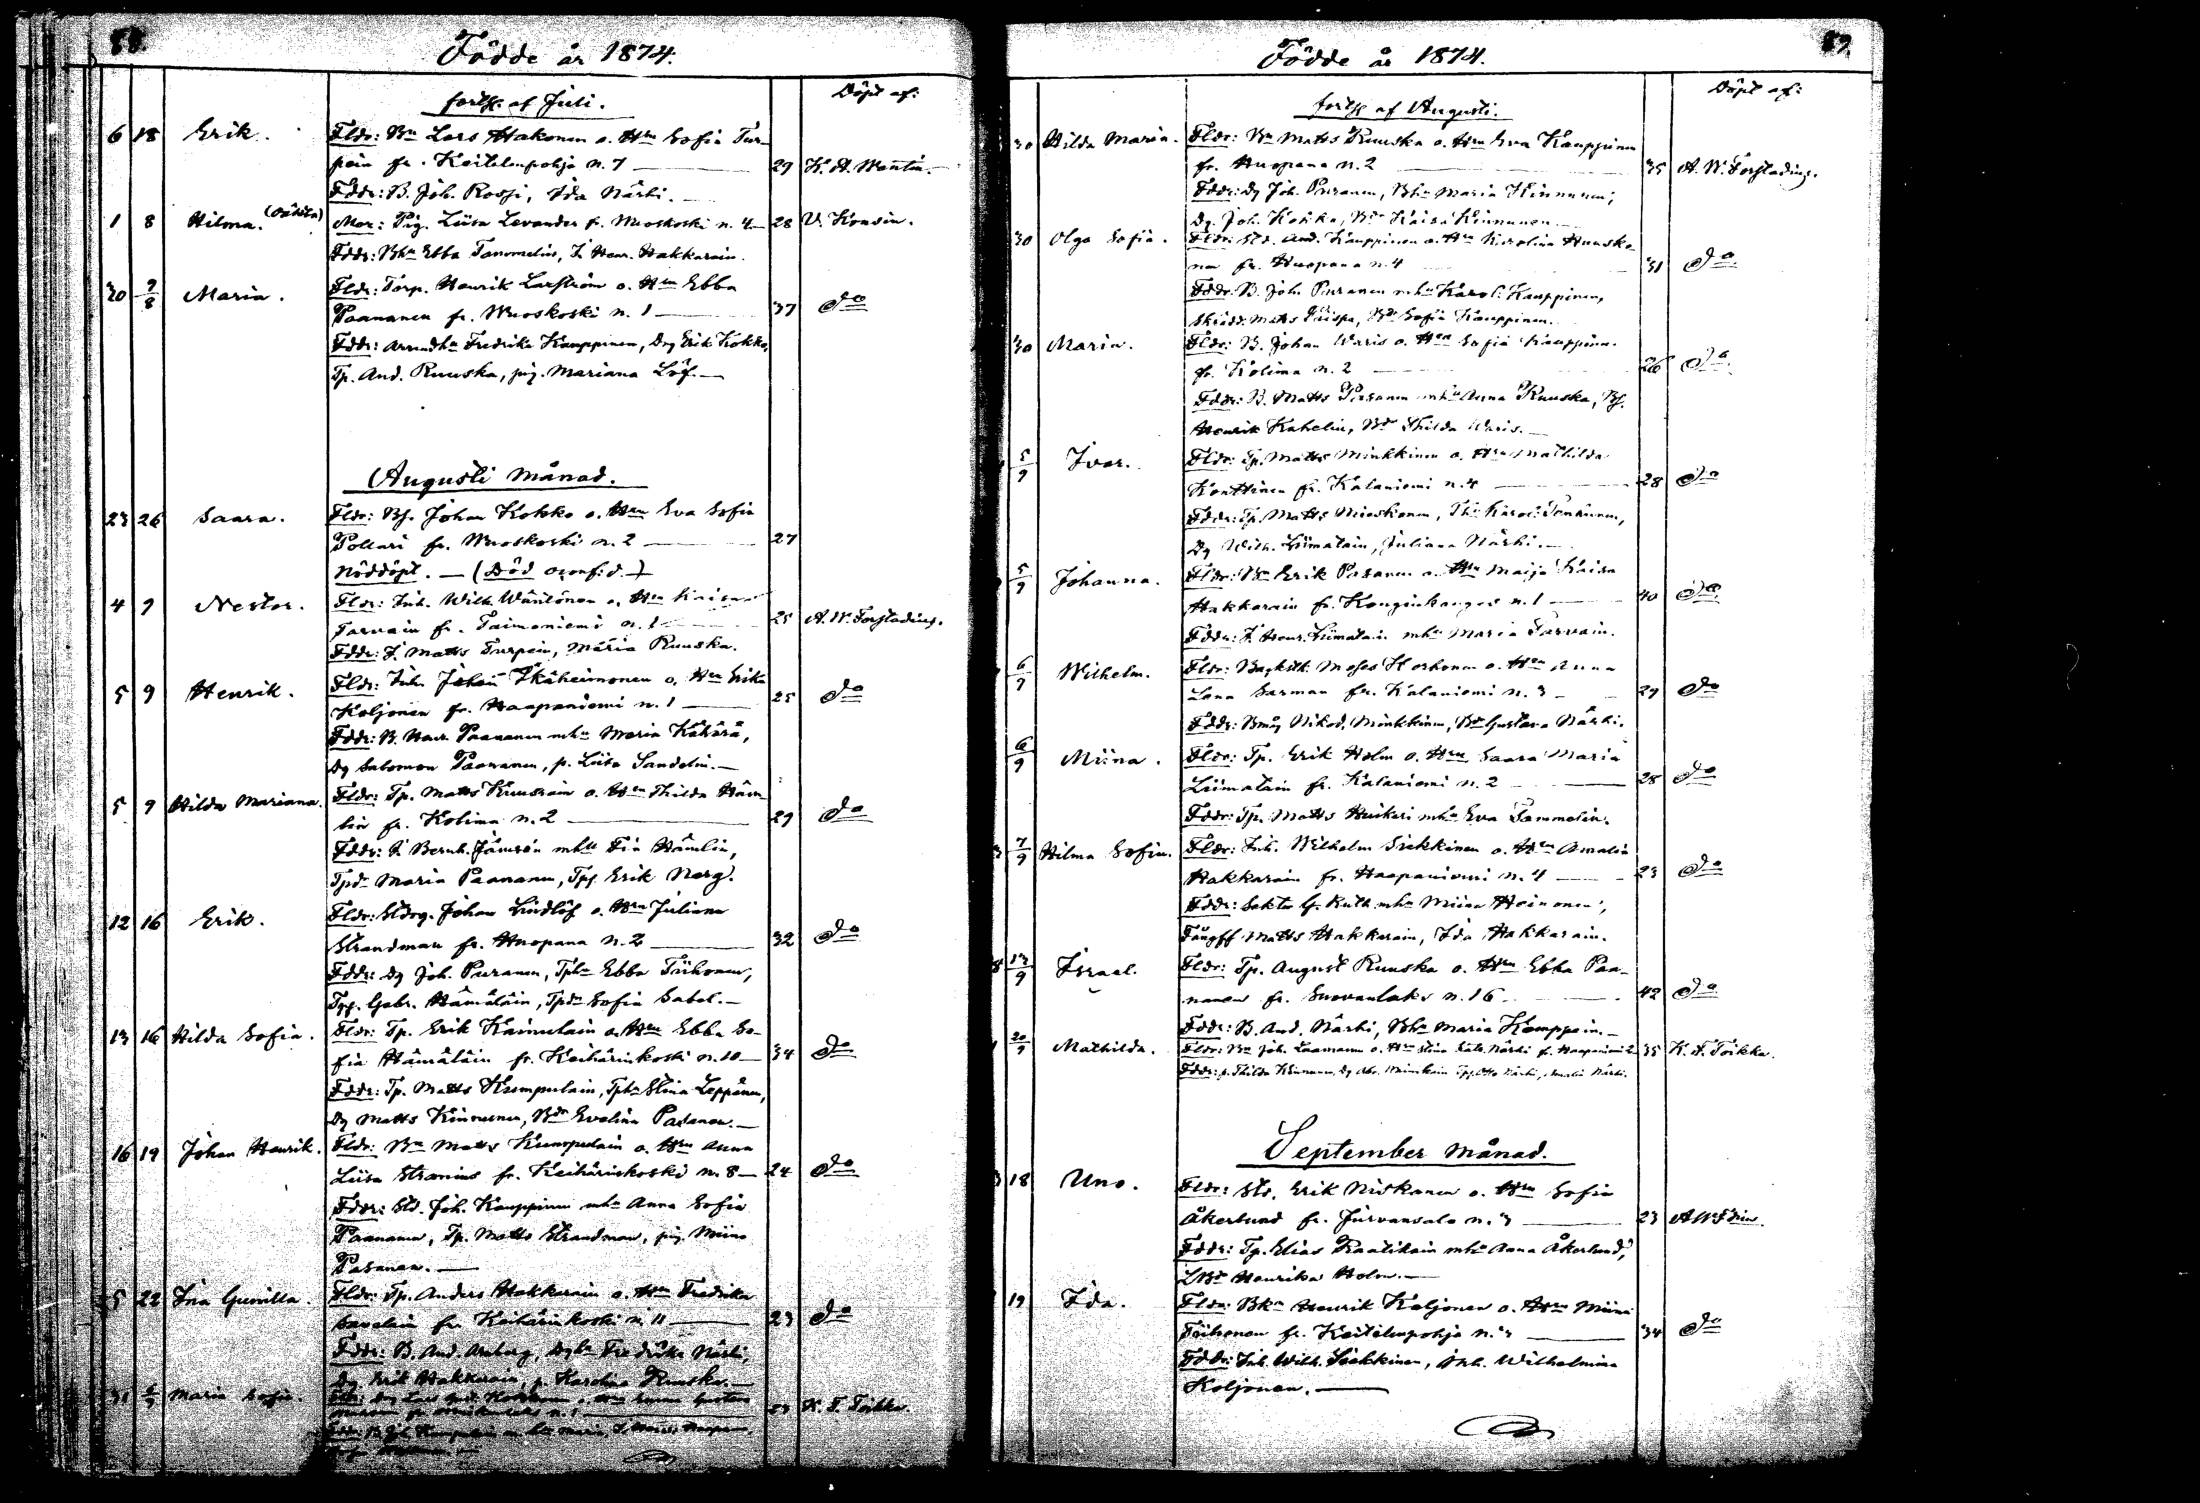 88.
Födde år 1874.
forts. af Juli.
Döpt af:
6 18 Erik. Fldr: Bn Lars Hakonen o. Hru Sofia Tur-
pein fr. Keitelenpohja n. 7 — 29 K. A. Wantin.
Fddr: B. Joh. Rossi, Ida Närhi.
1 8 Hilma. (Oäkta) Mor: Pig. Liisa Levander fr. Wuoskoski n. 4 — 28 V. Konsin.
Fddr: Bhu Ebba Tammelin, I. Henr. Hakkarain.
30 2/8 Maria. Fldr: Torp. Henrik Larström o. Hru Ebba
Paananen fr. Wuoskoski n. 1 — 37 do
Fddr: Arrendhu Fredrika Kauppinen, Drg Erik Kokko,
Tp. And. Ruuska, pig. Mariana Löf. —
Augusti Månad.
23 26 Saara. Fldr: Bs. Johan Kokko o. Hru Eva Sofia
Pollari fr. Wuoskoski n. 2 — 27
Nöddöpt. — (Död)
4 7 Nestor. Fldr: Inh. Wilh. Wäntönen o. Hru Kaisa
Tarvain fr. Taimoniemi n. 1 — 25 A. W. Forstadius.
Fddr: I. Matts Turpein, Maria Ruuska.
5 9 Henrik. Fldr: Inh. Johan Ikäheimonen o. Hru Erika
Koljonen fr. Haapaniemi n. 1 — 25 do
Fddr: B. Henr. Paananen mhu Maria Kähärä,
Dg Salomon Paananen, p. Liisa Sandelin. —
5 9 Hilda Mariana. Fldr: Tp. Matts Ruusrain o. Hru Thilda Häm-
lin fr. Kolima n. 2 — 29 do
Fddr: I. Bernh. Jämsén mhu Fia Hämlin,
Tpdr Maria Paananen, Tps. Erik Norg.
12 16 Erik. Fldr: Johan Lindlöf o. Hru Juliana
Strandman fr. Huopana n. 2 — 32 do
Fddr: Dg Joh. Puranen, Tphu Ebba Tiihonen,
Tps. Gabr. Hämäläin, Tpdr Sofia Sabel. —
13 16 Hilda Sofia. Fldr: Tp. Erik Kainulain o. Hru Ebba So-
fia Hämäläin fr. Keihärinkoski n. 10 — 34 do
Fddr: Tp. Matts Kumpulain, Tphu Stina Leppänen,
Dg Matts Kinnunen, Bdr Evelina Pasanen. —
16 19 Johan Henrik. Fldr: Bn Matts Kumpulain o. Hru Anna
Liisa Stranius fr. Keihärinkoski n. 8 — 24 do
Fddr: Std. Joh. Kauppinen mhu Anna Sofia
Paananen, Tp. Matts Strandman, pig. Miina
Pasanen. —
5 22 Ina Gunilla. Fldr: Tp. Anders Hakkarain o. Hru Fredrika
Savelin fr. Keihärinkoski n. 11 — 23 do
Fddr: B. And. Arnberg, Dghu Fredrika Närhi,
Dg Erik Hakkarain, p. Karolina Ruuska. —
31 Maria Sofia. K. F. Toikka.
89.
Födde år 1874.
forts af Augusti.
Döpt af:
30 Hilda Maria. Fldr: Bn Matts Ruuska o. Hru Eva Kauppinen
fr. Huopana n. 2 35 A. W. Forstadius.
Fddr: Dg Joh. Puranen, Bhu Maria Kinnunen,
Dg. Joh. Kokko, Bdr Kaisa Kinnunen.
30 Olga Sofia. Fldr: Std. And. Kauppinen o. Hru Karolina Huusko-
nen fr. Huopana n. 4 31 do
Fddr: B. Joh. Puranen mhu Karol. Kauppinen,
Skrädd. Matts Piispa, Bdr Sofia Kauppinen.
30 Maria. Fldr: B. Johan Waris o. Hru Sofia Kauppinen
fr. Kolima n. 2 26 do
Fddr: B. Matts Pasanen mhu Anna Ruuska, Bs.
Henrik Kahelin, Bdr Thilda Waris. —
5/9 Ivar. Fldr: Tp. Matts Minkkinen o. Hru Mathilda
Konttinen fr. Kalaniemi n. 4 — 28 do
Fddr: Tp. Matts Nieskanen, Thu Karol. Tenhunen,
Dg Wilh. Liimatain, Juliana Närhi. —
5/9 Johanna. Fldr: Bn Erik Pasanen o. Hru Maija Kaisa
Hakkarain fr. Konginkangas n. 1 — 40 do
Fddr: I. Henr. Liimatain mhu Maria Tarvain.
6/9 Wilhelm. Fldr: Backstk. Moses Korhonen o. Hru Anna
Lena Sarman fr. Kalaniemi n. 3 — 29 do
Fddr: Bmåg Nikod. Minkkinen, Bdr Gustava Närhi.
6/9 Miina. Fldr: Tp. Erik Holm o. Hru Saara Maria
Liimatain fr. Kalaniemi n. 2 — 28 do
Fddr: Tp. Matts Huikari mhu Eva Tammelin.
7/9 Hilma Sofia. Fldr: Inh. Wilhelm Siekkinen o. Hru Amalia
Hakkarain fr. Haapaniemi n. 4 — 23 do
Fddr: Sokto G. Ruth mhu Miina Heinonen,
Matts Hakkarain, Ida Hakkarain.
13/9 Israel. Fldr: Tp. August Ruuska o. Hru Ebba Paa-
nanen fr. Suovanlaks n. 16 42 do
Fddr: B. And. Närhi, Bhu Maria Kemppain. —
20/9 Mathilda. Fldr: Bn Joh. Laamanen o. Hru Stina Kais. Närhi fr. Haapaniemi 2 35 K. F. Toikka.
Fddr: p. Thilda Kinnunen, Dg Otto Närhi, Amalia Närhi.
September Månad.
3 18 Uno. Fldr: Std. Erik Niskanen o. Hru Sofia
Åkerlund fr. Jurvansalo n. 3 — 23 A W Fdius
Fddr: Tp. Elias Raatikain mhu Anna Åkerlund,
Henrika Holm. —
19 Ida. Fldr: Bkn Henrik Koljonen o. Hru Miina
Tiihonen fr. Keitelenpohja n. 3 — 34 do
Fddr: Inh. Wilh. Siekkinen, Inh. Wilhelmina
Koljonen. —